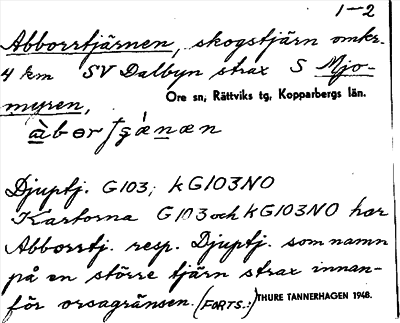 1-2
Abborrtjärnen, skogstjärn omkr.
4 km SV Dalbyn strax S Mjo-
myren,
Ore sn, Rättviks tg, Kopparbergs län.
Djuptj. G103; kG103NO
Kartorna G103 och kG103NO har
Abborrtj. resp. Djuptj. som namn
på en större tjärn strax innan-
för orsagränsen. (FORTS.:)
THURE TANNERHAGEN 1948.